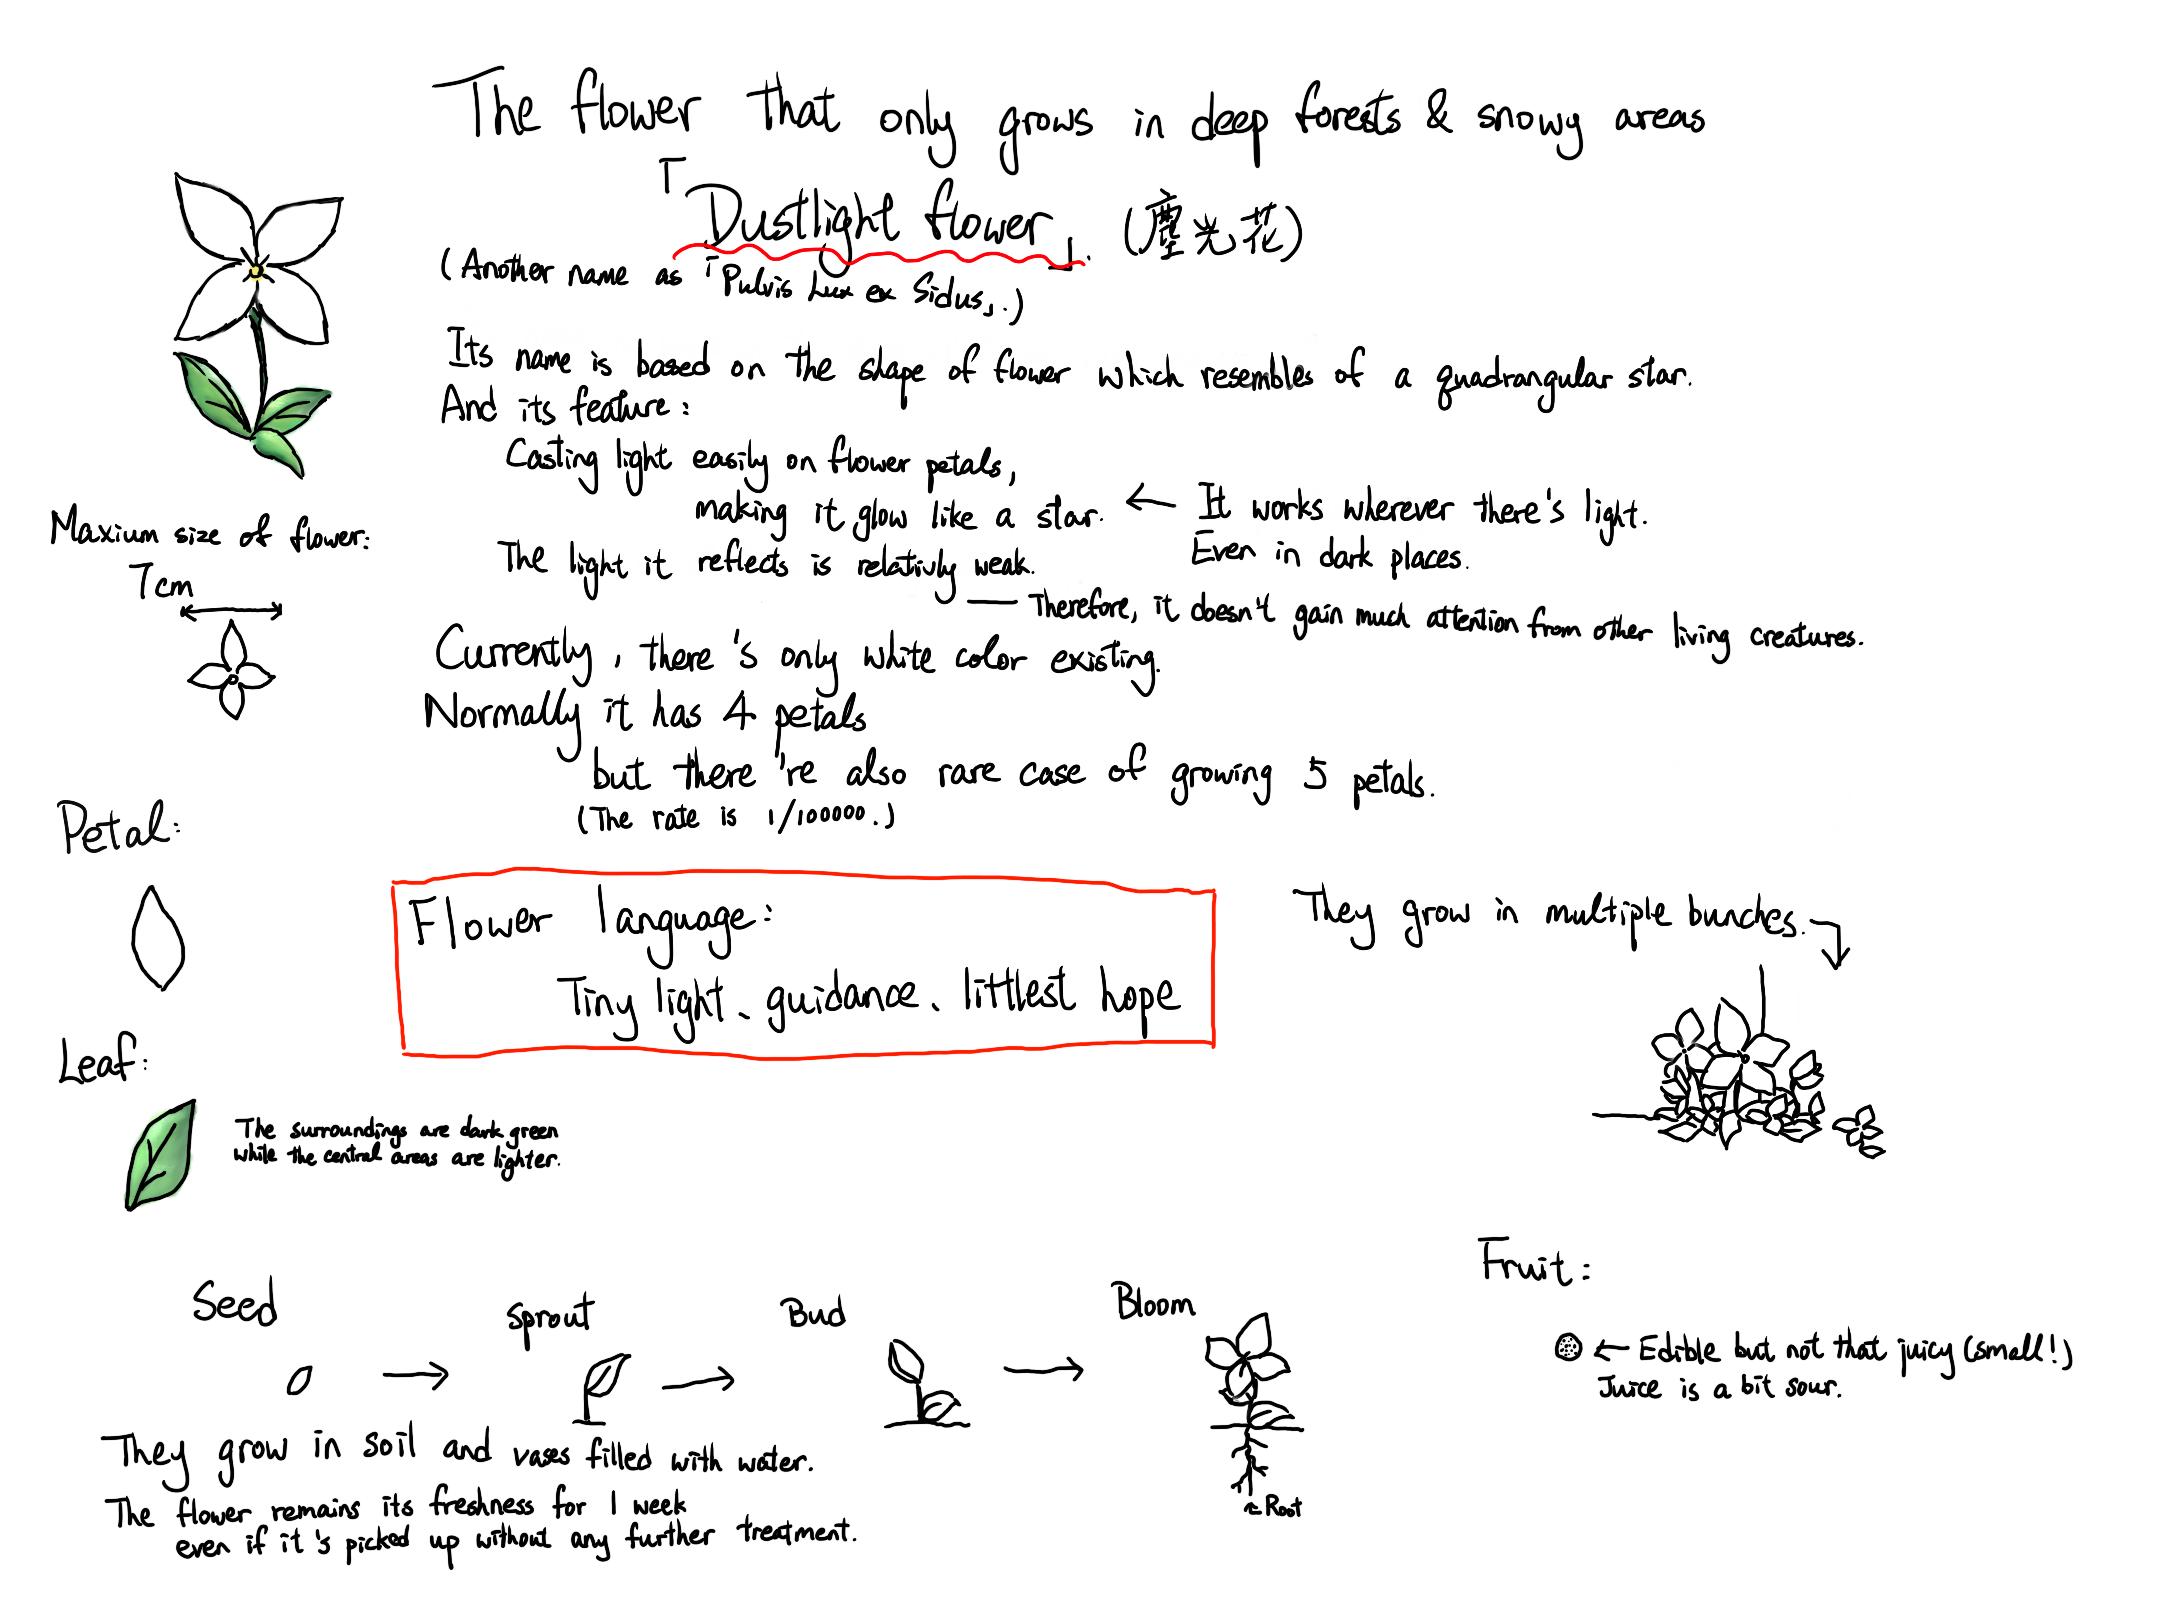 The flower that only grows in deep forests & snowy areas
「Dustlight flower」. (塵光花)
(Another name as 「Pulvis Lux ex Sidus」.)
Its name is based on the shape of flower which resembles of a quadrangular star.
And its feature:
Casting light easily on flower petals,
making it glow like a star. ← It works wherever there's light.
Even in dark places.
The light it reflects is relativly weak.
— Therefore, it doesn't gain much attention from other living creatures.
Currently, there's only white color existing.
Normally it has 4 petals
but there're also rare case of growing 5 petals.
(The rate is 1/100000.)
Maxium size of flower:
7cm
Petal:
Leaf:
The surroundings are dark green
while the central areas are lighter.
Flower language:
Tiny light、guidance、littlest hope
They grow in multiple bunches.
Seed → Sprout → Bud → Bloom
← Root
They grow in soil and vases filled with water.
The flower remains its freshness for 1 week
even if it's picked up without any further treatment.
Fruit:
← Edible but not that juicy (small!)
Juice is a bit sour.